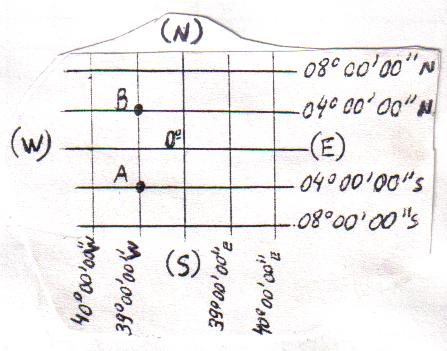 (N)
08° 00' 00" N
B
04° 00' 00" N
0°
(W)
(E)
A
04° 00' 00" S
08° 00' 00" S
(S)
40° 00' 00" W
39° 00' 00" W
39° 00' 00" E
40° 00' 00" E